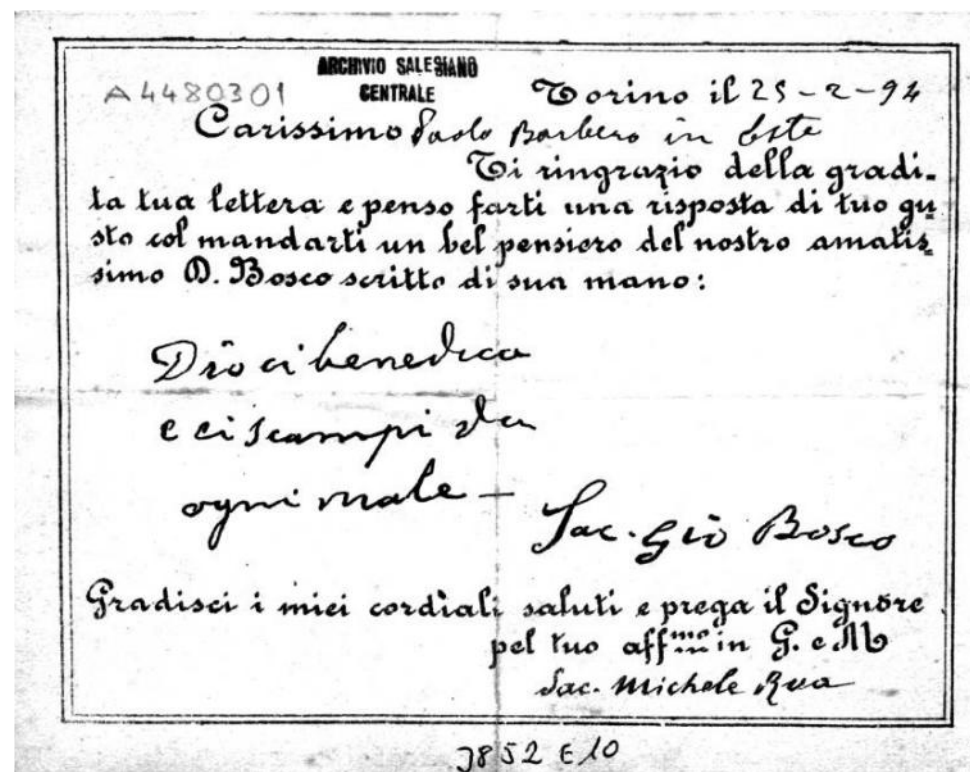 ARCHIVIO SALESIANO
CENTRALE
A4480301
Torino il 25-2-94
Carissimo Paolo Barbero in Este
Ti ringrazio della gradi-
ta tua lettera e penso farti una risposta di tuo gu
sto col mandarti un bel pensiero del nostro amatis
simo D. Bosco scritto di sua mano:
Dio ci benedica
e ci scampi da
ogni male -
Sac. Gio Bosco
Gradisci i miei cordiali saluti e prega il Signore
pel tuo aff.mo in G. e M
Sac. Michele Rua
3852 E 10